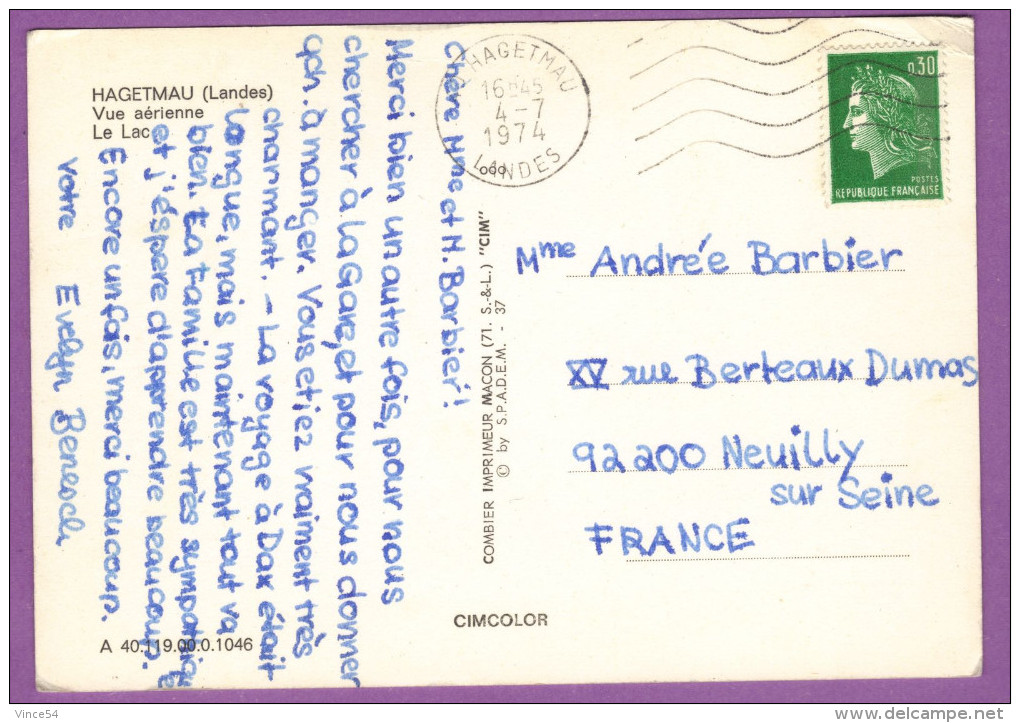 HAGETMAU (Landes)
Vue aérienne
Le Lac
Chère Mme et M. Barbier!
Merci bien un autre fois, pour nous
chercher à la Gare, et pour nous donner
qch. à manger. Vous etiez vraiment très
charmant. – La voyage à Dax était
longue, mais maintenant tout va
bien. La Famille est très sympatique
et j'éspère d'apprendre beaucoup.
Encore unfois, merci beaucoup.
votre Evelyn
A 40.119.00.0.1046
COMBIER IMPRIMEUR MACON (71. S.-&-L.) "CIM"
© by S.P.A.D.E.M. - 37
CIMCOLOR
HAGETMAU
16H45
4-7
1974
LANDES
0,30
POSTES
REPUBLIQUE FRANÇAISE
Mme Andrée Barbier
XV rue Berteaux Dumas
92200 Neuilly
sur Seine
FRANCE
Vince54